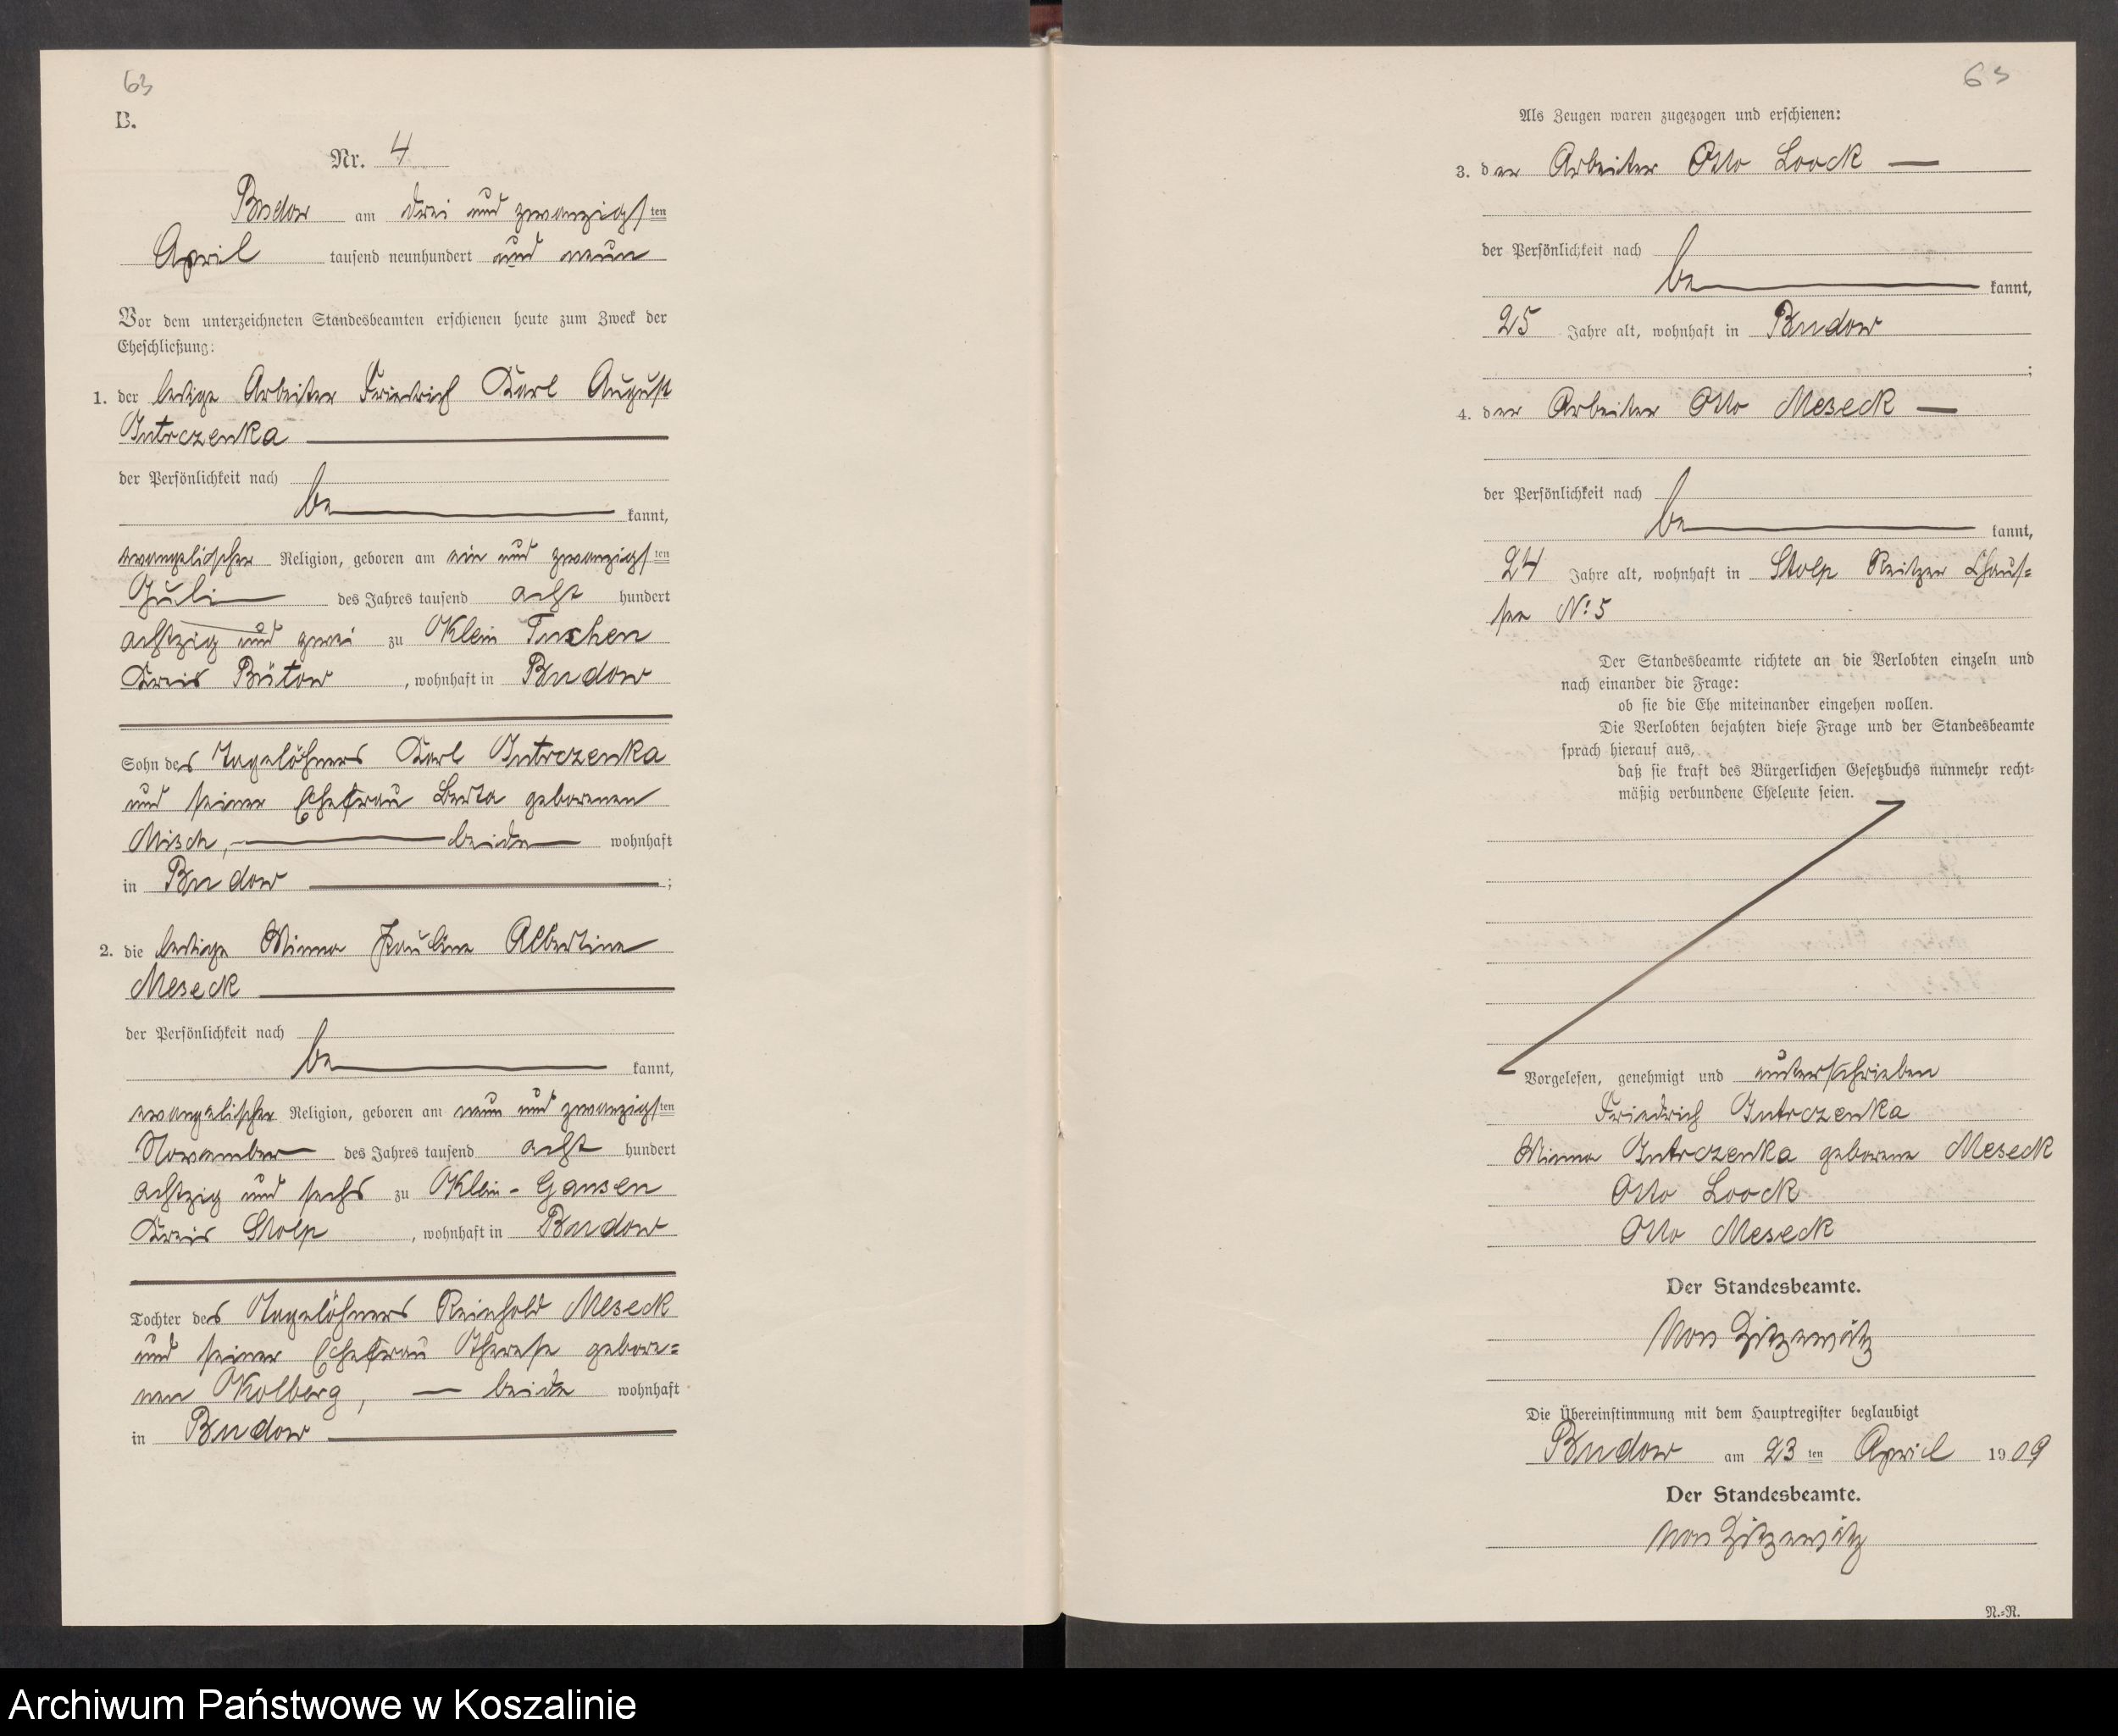 63
B.
Nr. 4
Budow am drei und zwanzigsten
April tausend neunhundert und neun
Vor dem unterzeichneten Standesbeamten erschienen heute zum Zweck der
Eheschließung:
1. der ledige Arbeiter Friedrich Karl August
Jutrczenka
der Persönlichkeit nach
be kannt,
evangelischer Religion, geboren am ein und zwanzigsten
Juli des Jahres tausend acht hundert
achtzig und zwei zu Klein Tuchen
Kreis Bütow, wohnhaft in Budow
Sohn des Tagelöhners Karl Jutrczenka
und seiner Ehefrau Berta geborenen
Misch, beide wohnhaft
in Budow ;
2. die ledige Minna Pauline Albertine
Meseck
der Persönlichkeit nach
be kannt,
evangelischer Religion, geboren am neun und zwanzigsten
November des Jahres tausend acht hundert
achtzig und sechs zu Klein-Gansen
Kreis Stolp, wohnhaft in Budow
Tochter des Tagelöhners Reinhold Meseck
und seiner Ehefrau Therese gebore=
nen Kolberg, beide wohnhaft
in Budow
63
Als Zeugen waren zugezogen und erschienen:
3. der Arbeiter Otto Loock
der Persönlichkeit nach
be kannt,
25 Jahre alt, wohnhaft in Budow
;
4. der Arbeiter Otto Meseck
der Persönlichkeit nach
be kannt,
24 Jahre alt, wohnhaft in Stolp Reitzer Chaus=
see No 5
Der Standesbeamte richtete an die Verlobten einzeln und
nach einander die Frage:
ob sie die Ehe miteinander eingehen wollen.
Die Verlobten bejahten diese Frage und der Standesbeamte
sprach hierauf aus,
daß sie kraft des Bürgerlichen Gesetzbuchs nunmehr recht=
mäßig verbundene Eheleute seien.
Vorgelesen, genehmigt und unterschrieben
Friedrich Jutrczenka
Minna Jutrczenka geborene Meseck
Otto Loock
Otto Meseck
Der Standesbeamte.
von Zitzewitz
Die Übereinstimmung mit dem Hauptregister beglaubigt
Budow am 23 ten April 1909
Der Standesbeamte.
von Zitzewitz
N.=R.
Archiwum Państwowe w Koszalinie